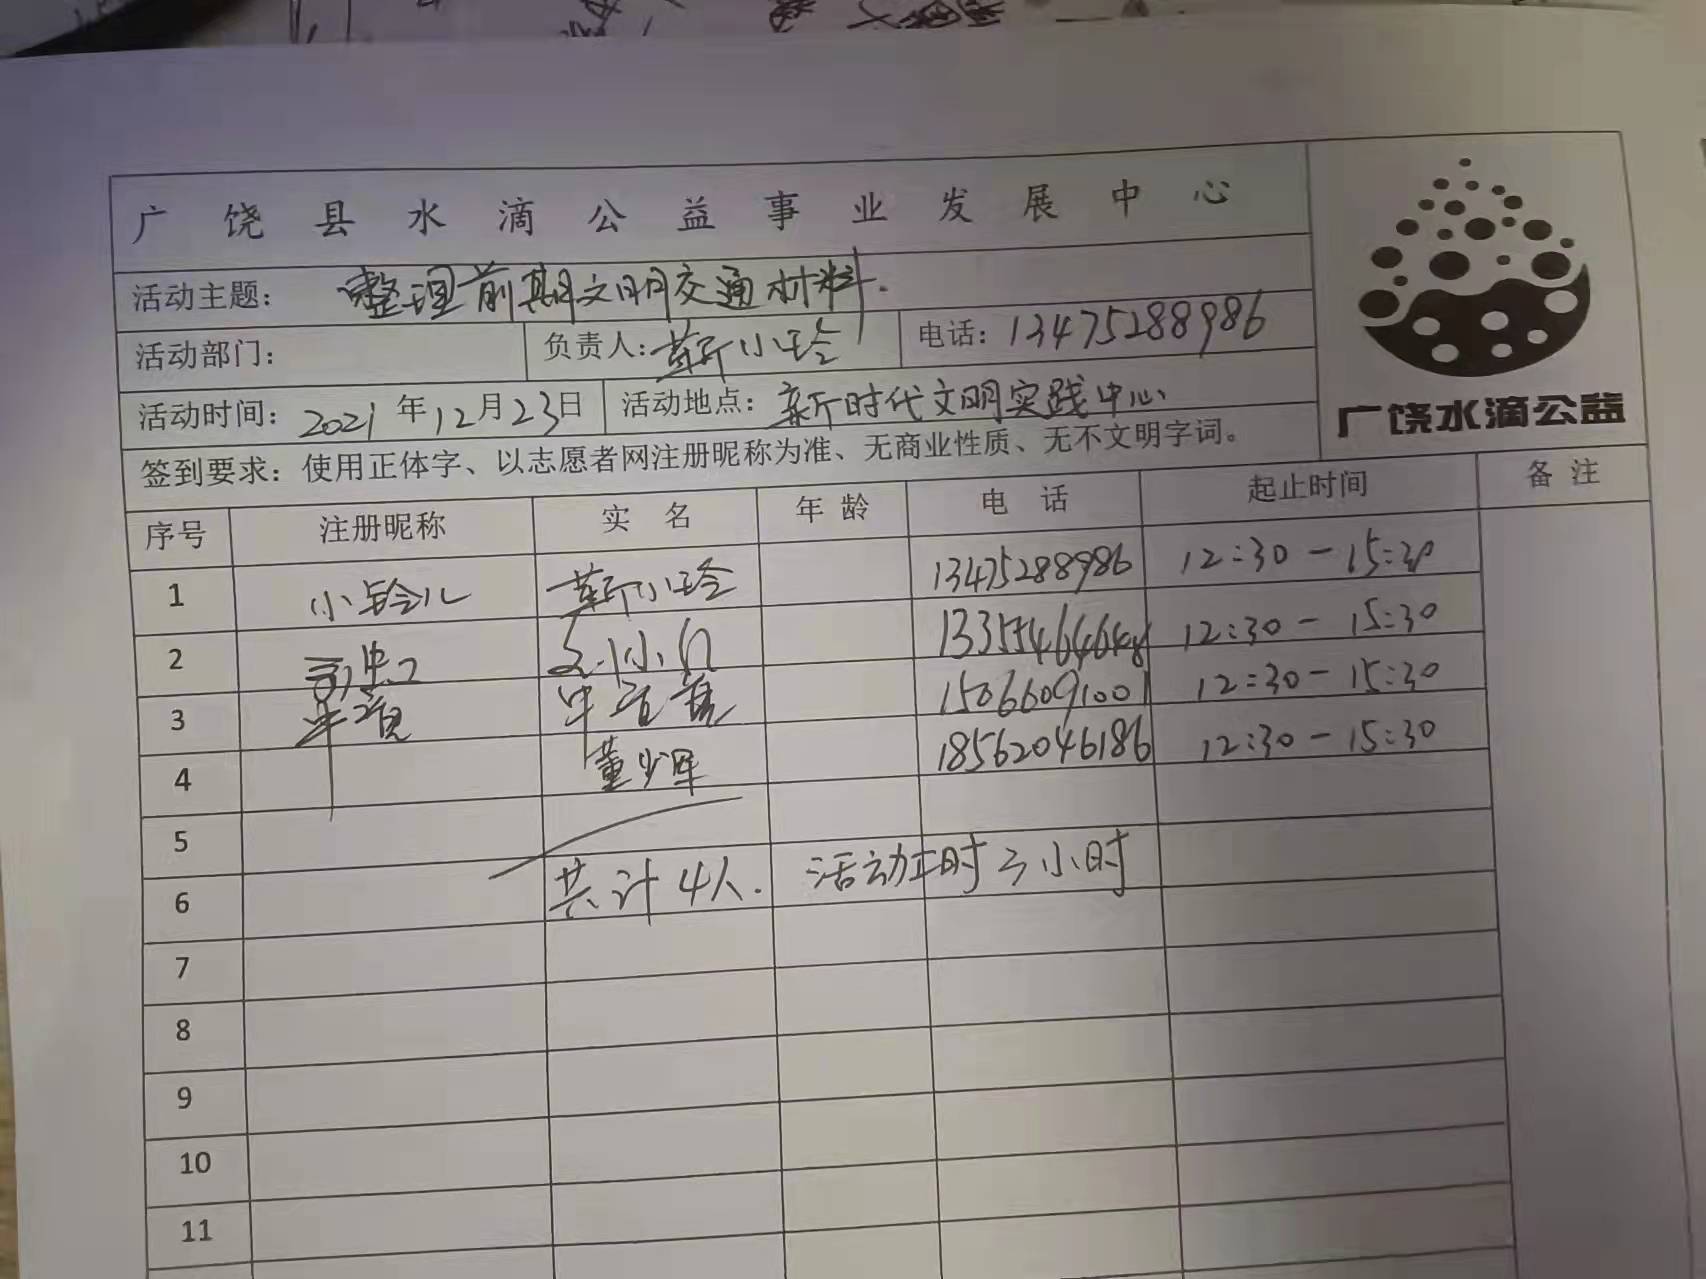 广饶县水滴公益事业发展中心
活动主题: 整理前期文明交通材料.
活动部门: 负责人: 靳小玲 电话: 13475288986
活动时间: 2021年12月23日 活动地点: 新时代文明实践中心
广饶水滴公益
签到要求: 使用正体字、以志愿者网注册昵称为准、无商业性质、无不文明字词。
序号 注册昵称 实名 年龄 电话 起止时间 备注
1 小铃儿 靳小玲 13475288986 12:30-15:30
2 12:30-15:30
3 15066091001 12:30-15:30
4 董少军 18562046186 12:30-15:30
5
6 共计4人. 活动工时3小时
7
8
9
10
11